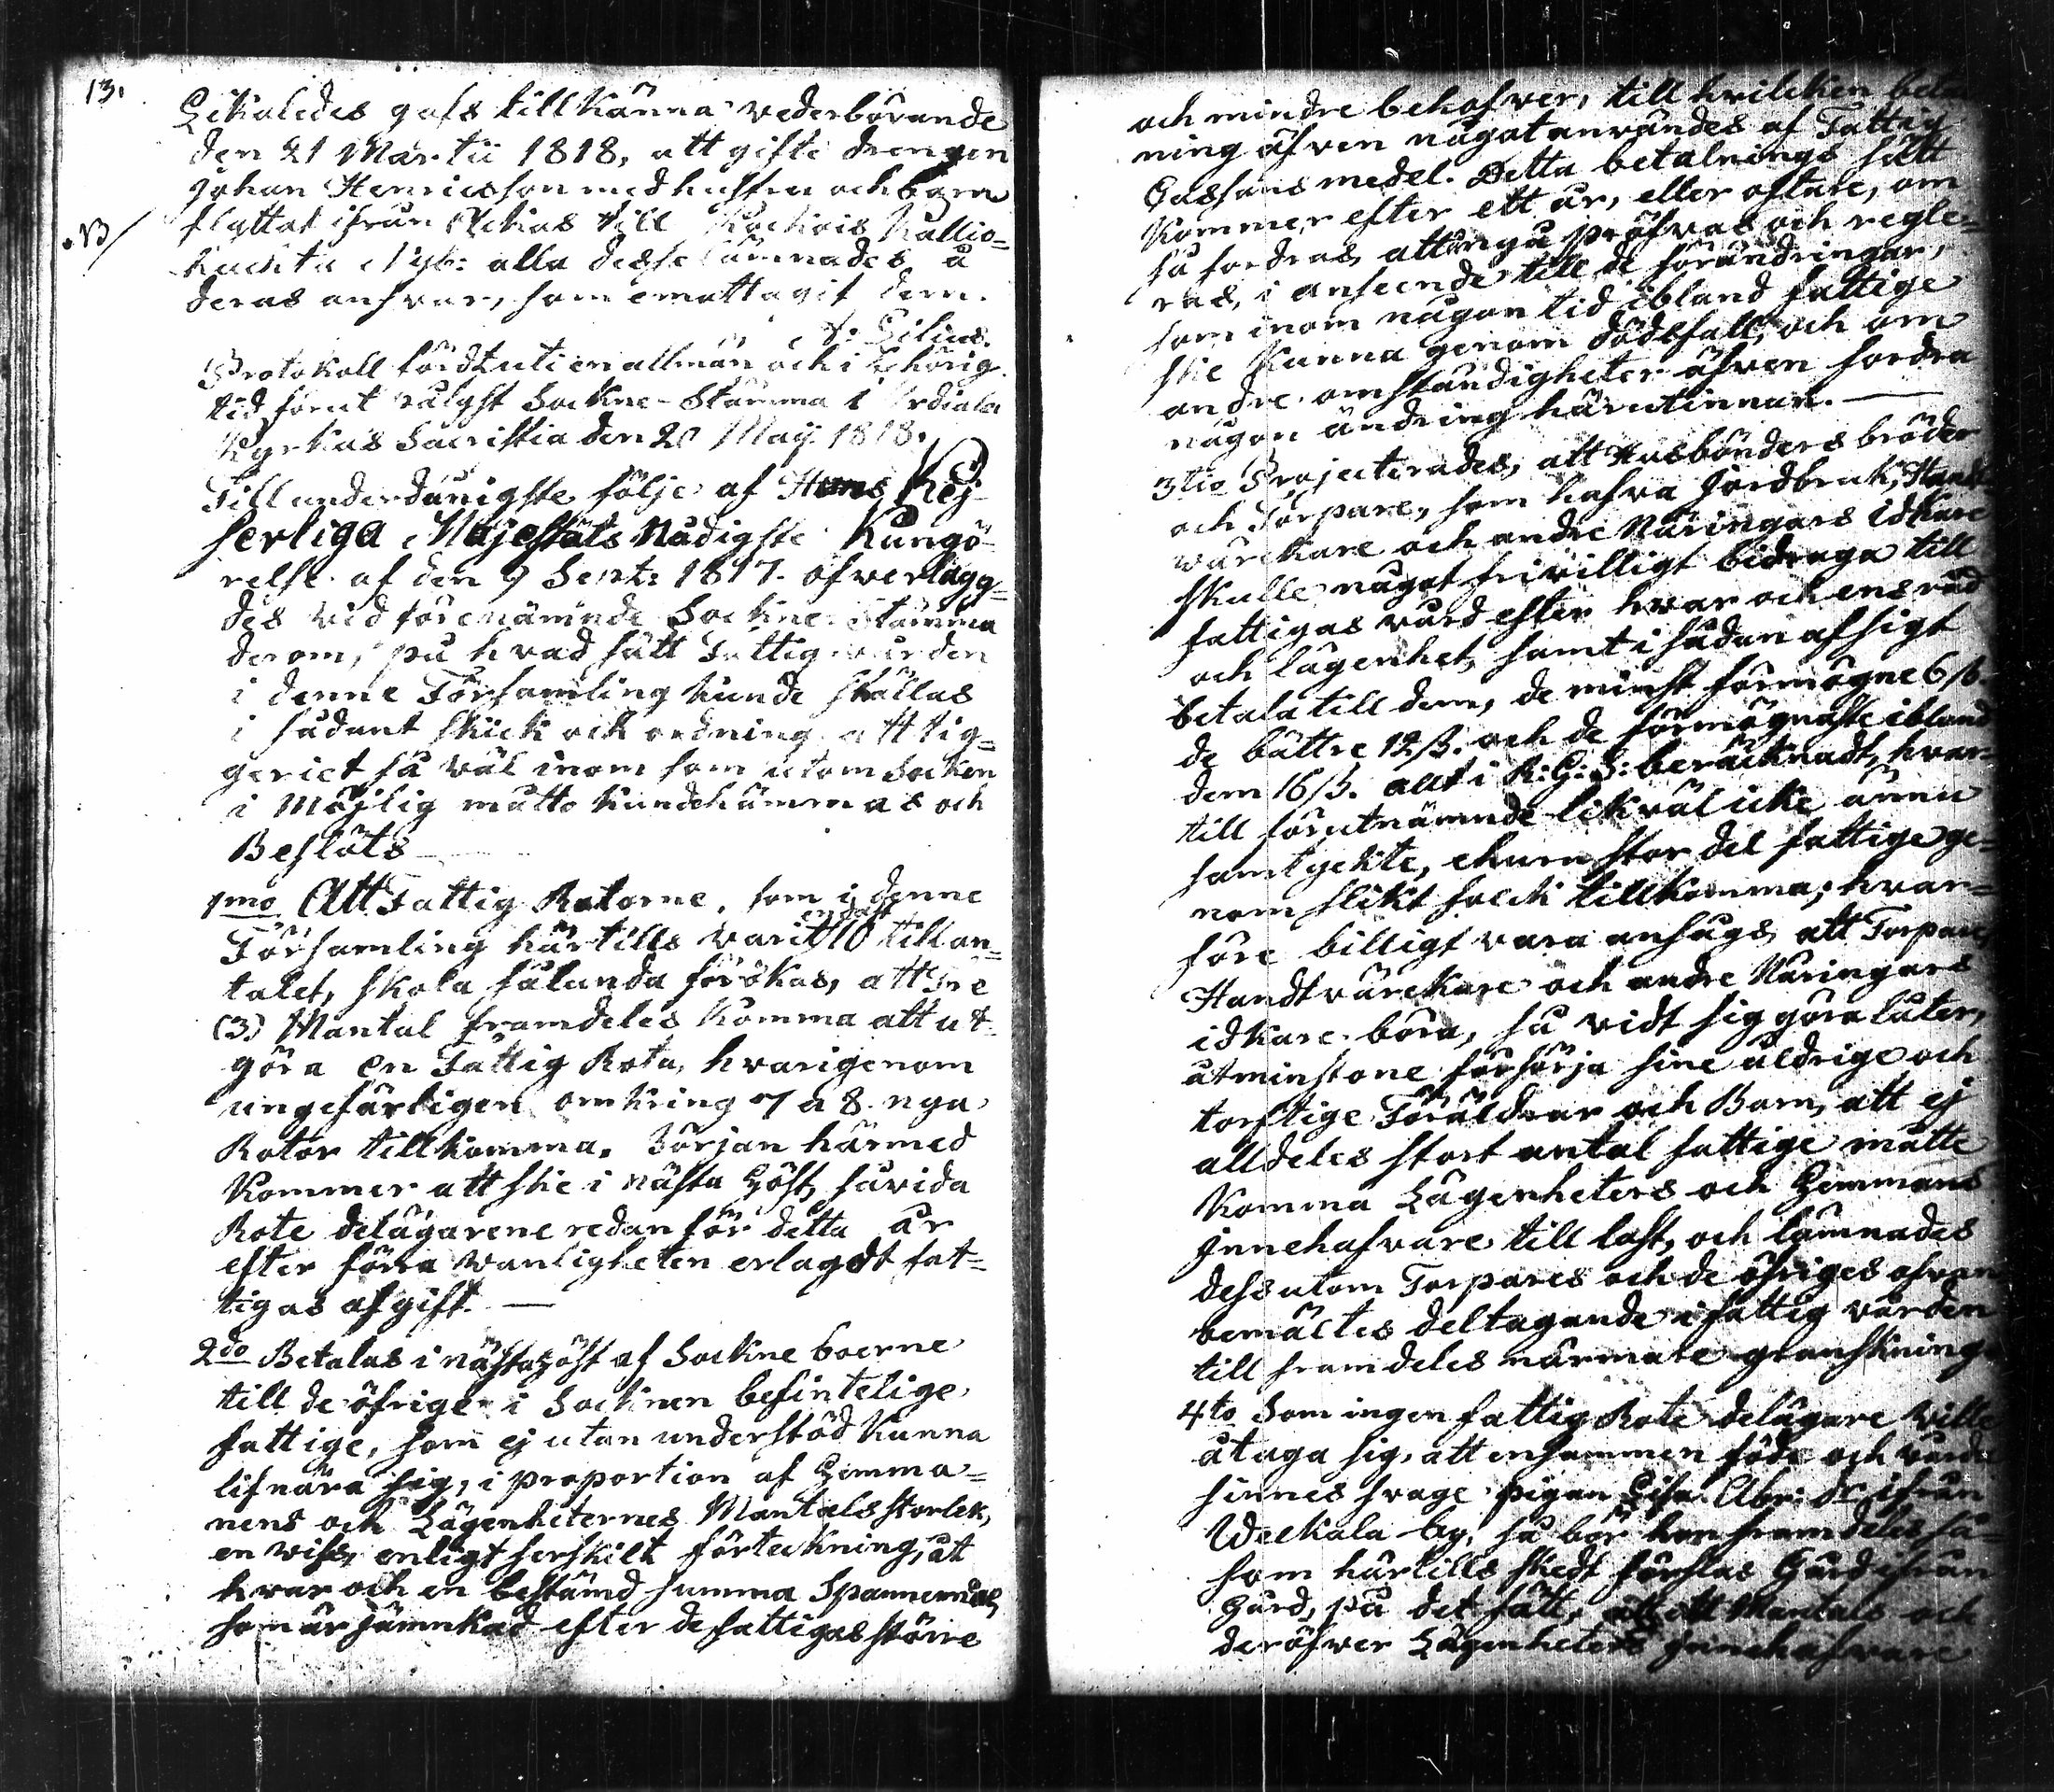 13.
Likaledes gafs tillkänna vederbörande
den 21 Martii 1818, att gifte drengen
Johan Henricsson med hustru och barn
flyttat ifrån till Kallio=
NB/
huchta Nyb: alla desse lämnades å
deras ansvar, som emottagit dem.
Lilius.
Protokoll fördt uti en allmän och i behörig
tid förut pålyst Sockne-Stämma i Urdiala
Kyrkas Sacristia den 20 Maij 1818.
Till underdånigste följe af Hans Kej-
serliga Majestäts Nådigste Kungö-
relse af den 9 Sept: 1817. öfverlägg=
des vid förenämnde Sockne Stämma
derom, på hvad sätt Fattigvården
i denne Församling kunde ställas
i sådant skick och ordning att tig=
geriet så väl inom som utom Socken
i Möjlig måtto kunde hämmas och
Beslöts
1mo Att Fattig Rotorne, som i denne
Församling härtills varit endast 10 till an=
talet, skola sålunda förökas, att Tre
(3.) Mantal framdeles komma att ut-
göra en Fattig Rota, hvarigenom
ungefärligen omkring 7 a 8. nya
Rotor tillkomma. Början härmed
kommer att ske i nästa Höst, såvida
Rote delägarene redan för detta år
efter förra vanligheten erlagdt fat=
tigas afgift. —
2do Betalas i nästa höst af Sockne boerne
till de öfrige i Socknen befintelige
fattige, som ej utan understöd kunna
lifnära sig, i proportion af Hemma=
nens och Lägenheternes Mantals storlek,
en viss, enligt serskilt förteckning, åt
hvar och en bestämd summa Spannemål,
som är jämnkad efter de fattigas större
och mindre behofver, till hvilcken betal
ning äfven något användes af Fattig
Cassans medel. Detta betalnings sätt
kommer efter ett år, eller oftare, om
så fordras, att ånyo pröfvas och regle=
ras, i anseende till de förändringar,
som inom någon tid ibland fattige
ske kunna genom dödsfall, och om
andre omständigheter äfven fordra
någon ändring härutinnan. —
3tio Projecterades, att Husbönders bröder
och Torpare, som hafva Jordbruk, Handt
värckare och andre Näringars idkare
skulle något frivilligt bidraga till
fattigas vård efter hvar och ens råd
och lägenhet, samt i sådan afsigt
betala till dem, de minst förmögne 6/ß.
de bättre 12/ß. och de förmögnaste ibland
dem 16/ß. allt i R:G:S: beräcknadt, hvar=
till förutnämnde likväl icke ännu
samtyckte, ehuru stor del fattige ge=
nom slikt folck tillkomma; hvar=
före billigt vara ansågs, att Torpare,
Handtvärckare och andre Näringars
idkare böra, så vidt sig göra låter,
åtminstone försörja sine åldrige och
torftige Föräldrar och Barn, att ej
alldeles stort antal fattige måtte
komma Lägenheters och Hemmans
Innehafvare till last, och lämnades
dessutom Torpares och de öfriges ofvan
bemältes deltagande i fattig vården
till framdeles närmare granskning.
4to Som ingen fattig Rote delägare ville
åtaga sig, att ensammen föda och vårda
sinnes svage pigan Lisa Abr: dr ifrån
Weckala by, så bör hon framdeles så=
som härtills skedt forslas Gård ifrån
Gård, på det sätt, att ett Mantals och
deröfver Lägenheters Innehafvare